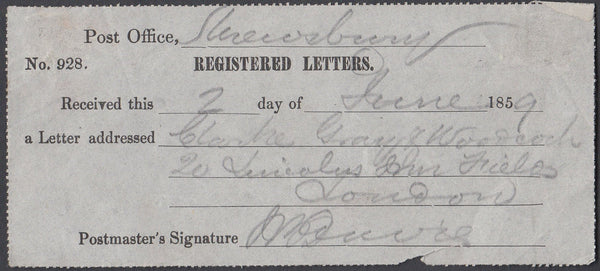 Post Office, Shrewsbury
No. 928. REGISTERED LETTERS.
Received this 2 day of June 1859
a Letter addressed Clarke Gray & Woodcock
20 Lincolns Inn Fields
London
Postmaster's Signature